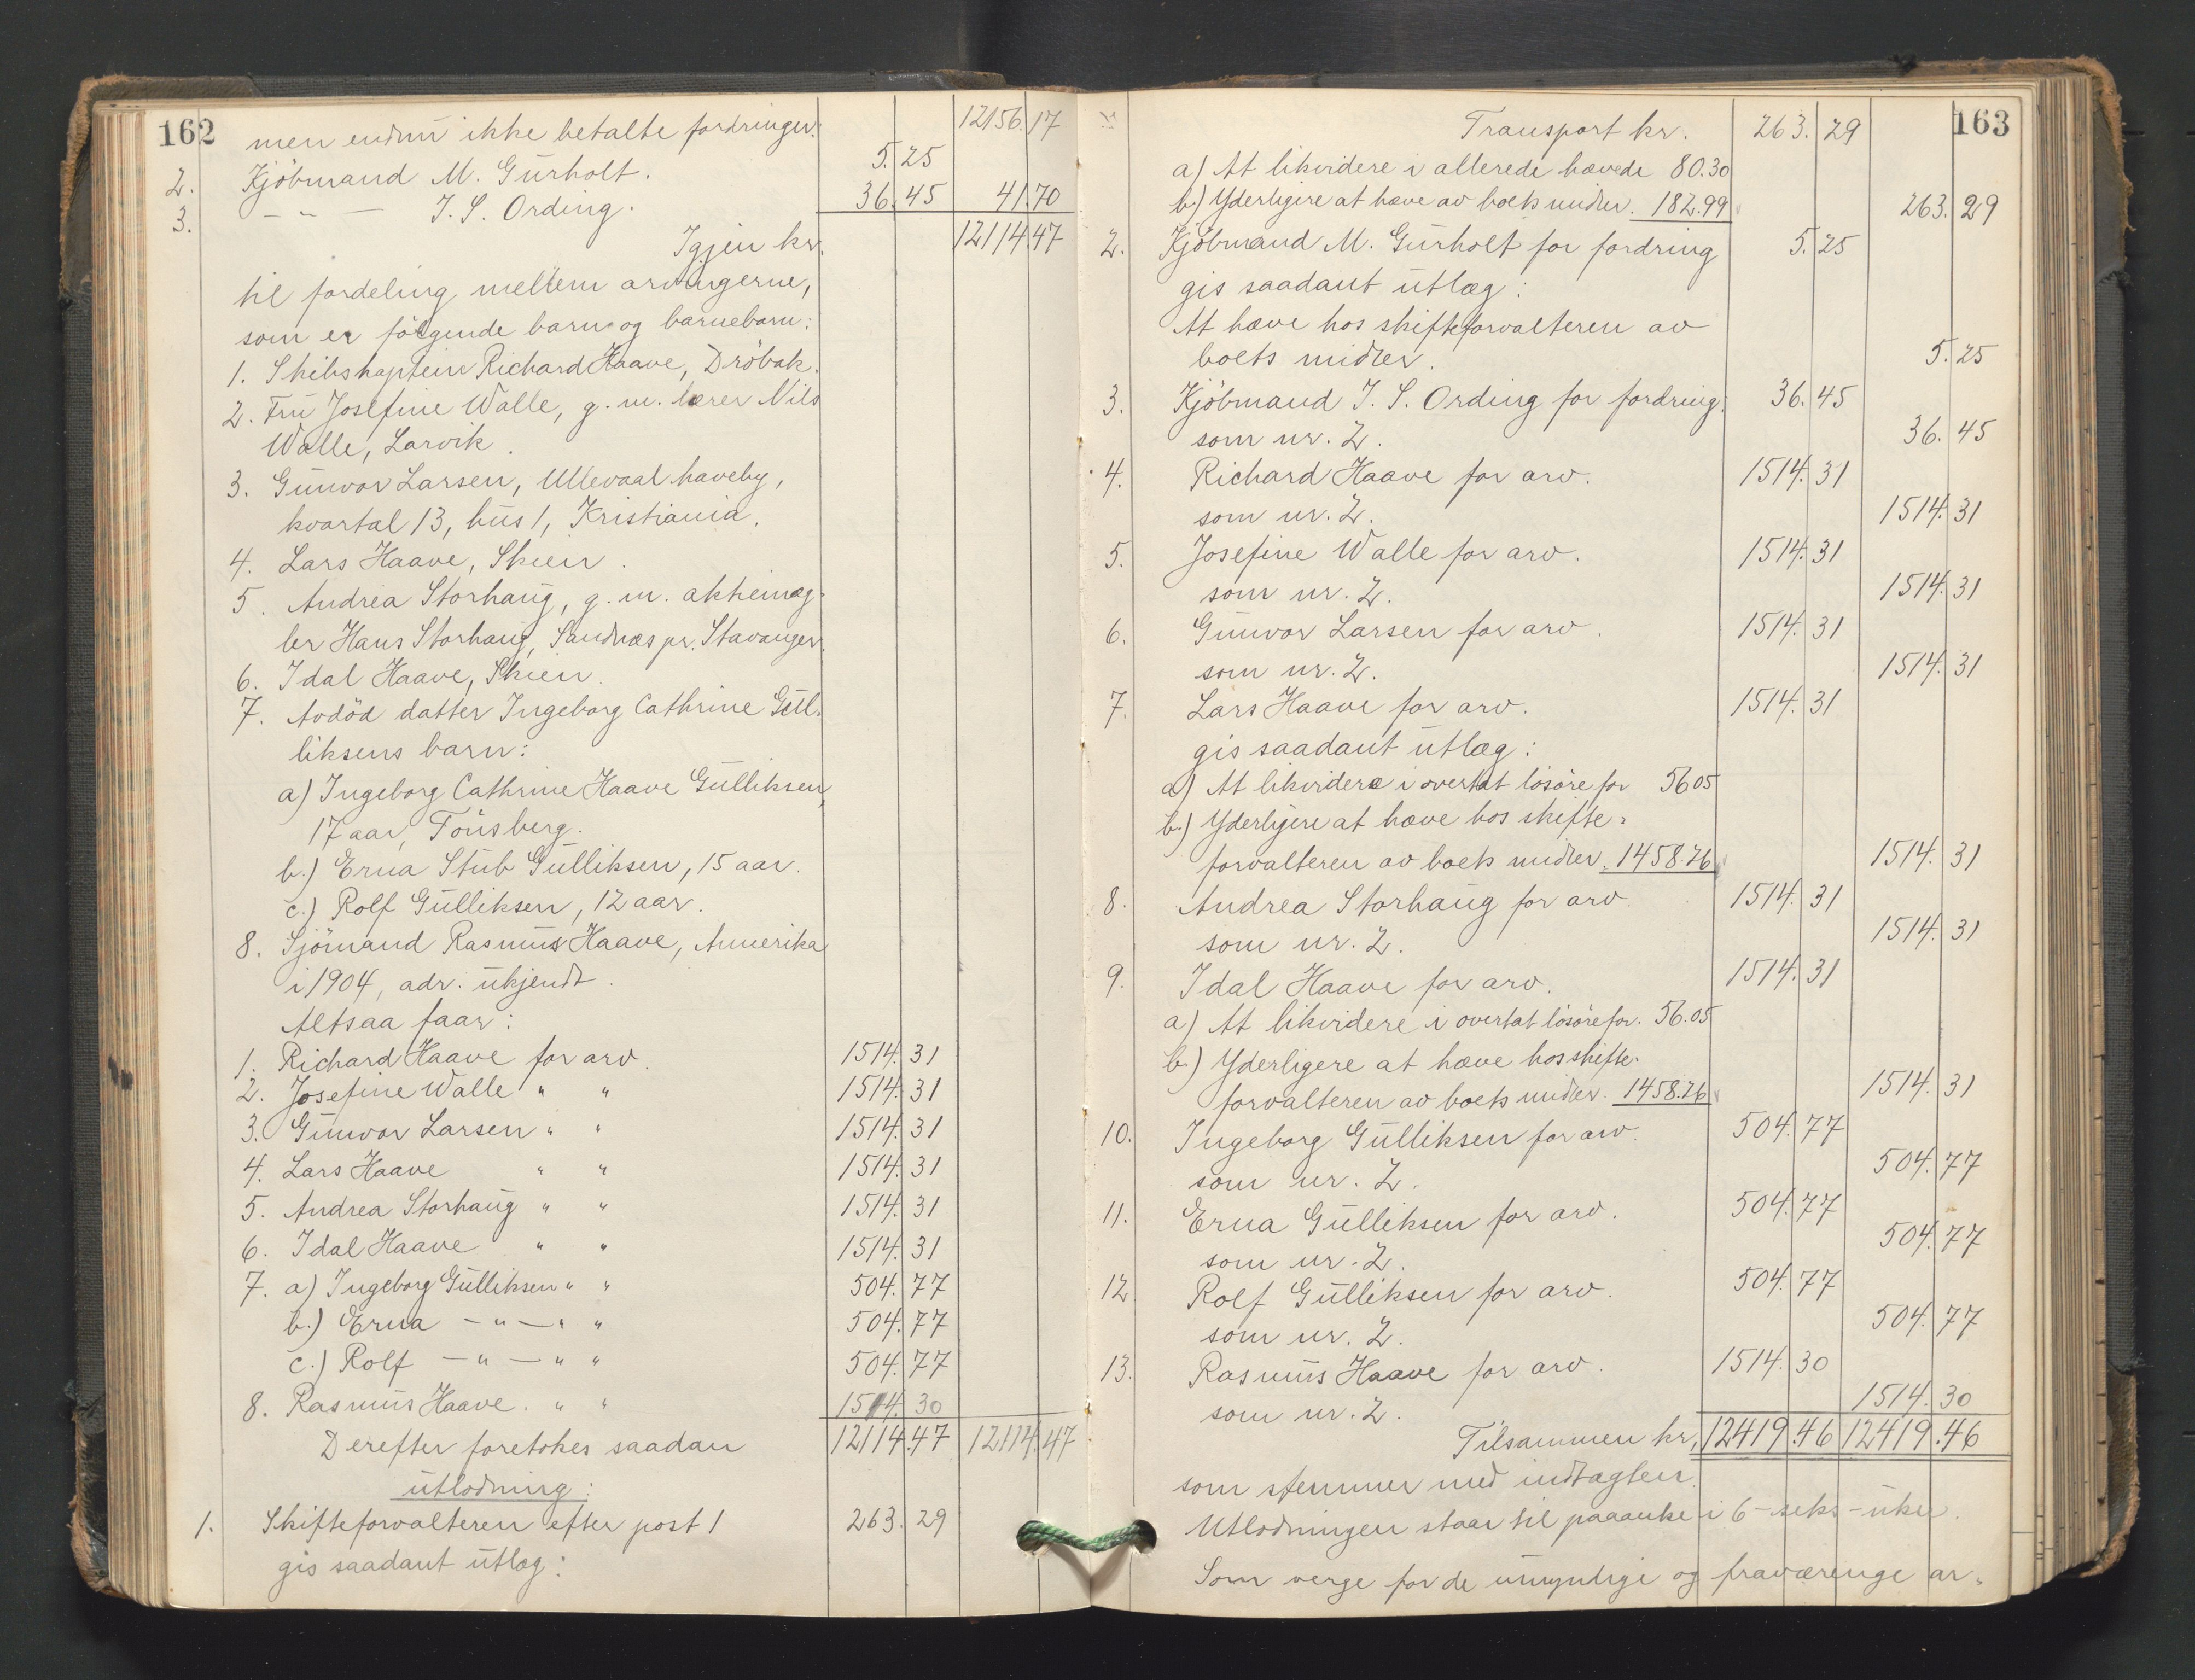 162
men endnu ikke betalte fordringer: 12156.17
2. Kjöbmand M. Gurholt. 5.25
3. — " — J. S. Ording. 36.45 41.70
Igjen kr. 12114.47
til fordeling mellem arvingerne,
som er følgende barn og barnebarn:
1. Skibskaptein Richard Haave, Dröbak.
2. Fru Josefine Walle, g. m. lærer Nils
Walle, Larvik.
3. Gunvor Larsen, Ullevaal haveby,
kvartal 13, hus 1, Kristiania.
4. Lars Haave, Skien.
5. Andrea Storhaug, g. m. aktiemæg-
ler Hans Storhaug, Sandnæs pr. Stavanger.
6. Idal Haave, Skien.
7. Avdöd datter Ingeborg Cathrine Gul-
liksens barn:
a) Ingeborg Cathrine Haave Gulliksen,
17 aar, Tönsberg.
b.) Erna Stub Gulliksen, 15 aar.
c.) Rolf Gulliksen, 12 aar.
8. Sjömand Rasmus Haave, Amerika
i 1904, adr. ukjendt.
Altsaa faar:
1. Richard Haave for arv. 1514.31
2. Josefine Walle " " 1514.31
3. Gunvor Larsen " " 1514.31
4. Lars Haave " " 1514.31
5. Andrea Storhaug " " 1514.31
6. Idal Haave " " 1514.31
7. a) Ingeborg Gulliksen " " 504.77
b.) Erna — " — " " 504.77
c.) Rolf — " — " " 504.77
8. Rasmus Haave. " " 1514.30
Derefter foretokes saadan 12114.47 12114.47
utlodning:
1. Skifteforvalteren efter post 1 263.29
gis saadant utlæg:
163
Transport kr. 263.29
a) At likvidere i allerede hævede 80.30
b.) Yderligere at hæve av boets midler. 182.99 263.29
2. Kjöbmand M. Gurholt for fordring 5.25
gis saadant utlæg:
At hæve hos skifteforvalteren av
boets midler. 5.25
3. Kjöbmand J. S. Ording for fordring. 36.45
som nr. 2. 36.45
4. Richard Haave for arv. 1514.31
som nr. 2. 1514.31
5. Josefine Walle for arv. 1514.31
som nr. 2. 1514.31
6. Gunvor Larsen for arv. 1514.31
som nr. 2. 1514.31
7. Lars Haave for arv. 1514.31
gis saadant utlæg:
a) At likvidere i overtat lösöre for 56 05
b.) Yderligere at hæve hos skifte-
forvalteren av boets midler. 1458.26 1514.31
8. Andrea Storhaug for arv. 1514.31
som nr. 2. 1514.31
9. Idal Haave for arv. 1514.31
a) At likvidere i overtat lösöre for. 56.05
b.) Yderligere at hæve hos skifte-
forvalteren av boets midler. 1458.26 1514.31
10. Ingeborg Gulliksen for arv. 504.77
som nr. 2. 504.77
11. Erna Gulliksen for arv. 504.77
som nr. 2. 504.77
12. Rolf Gulliksen for arv. 504.77
som nr. 2. 504.77
13. Rasmus Haave for arv. 1514.30
som nr. 2. 1514.30
Tilsammen kr. 12419.46 12419.46
som stemmer med indtægten.
Utlodningen staar til paaanke i 6-seks-uker.
Som verge for de umyndige og fraværenge ar-